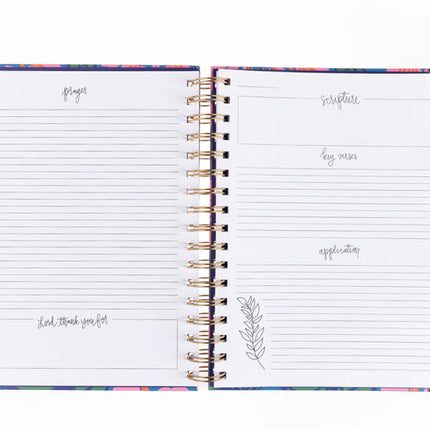 prayer
Lord, thank you for
scripture
key verses
application